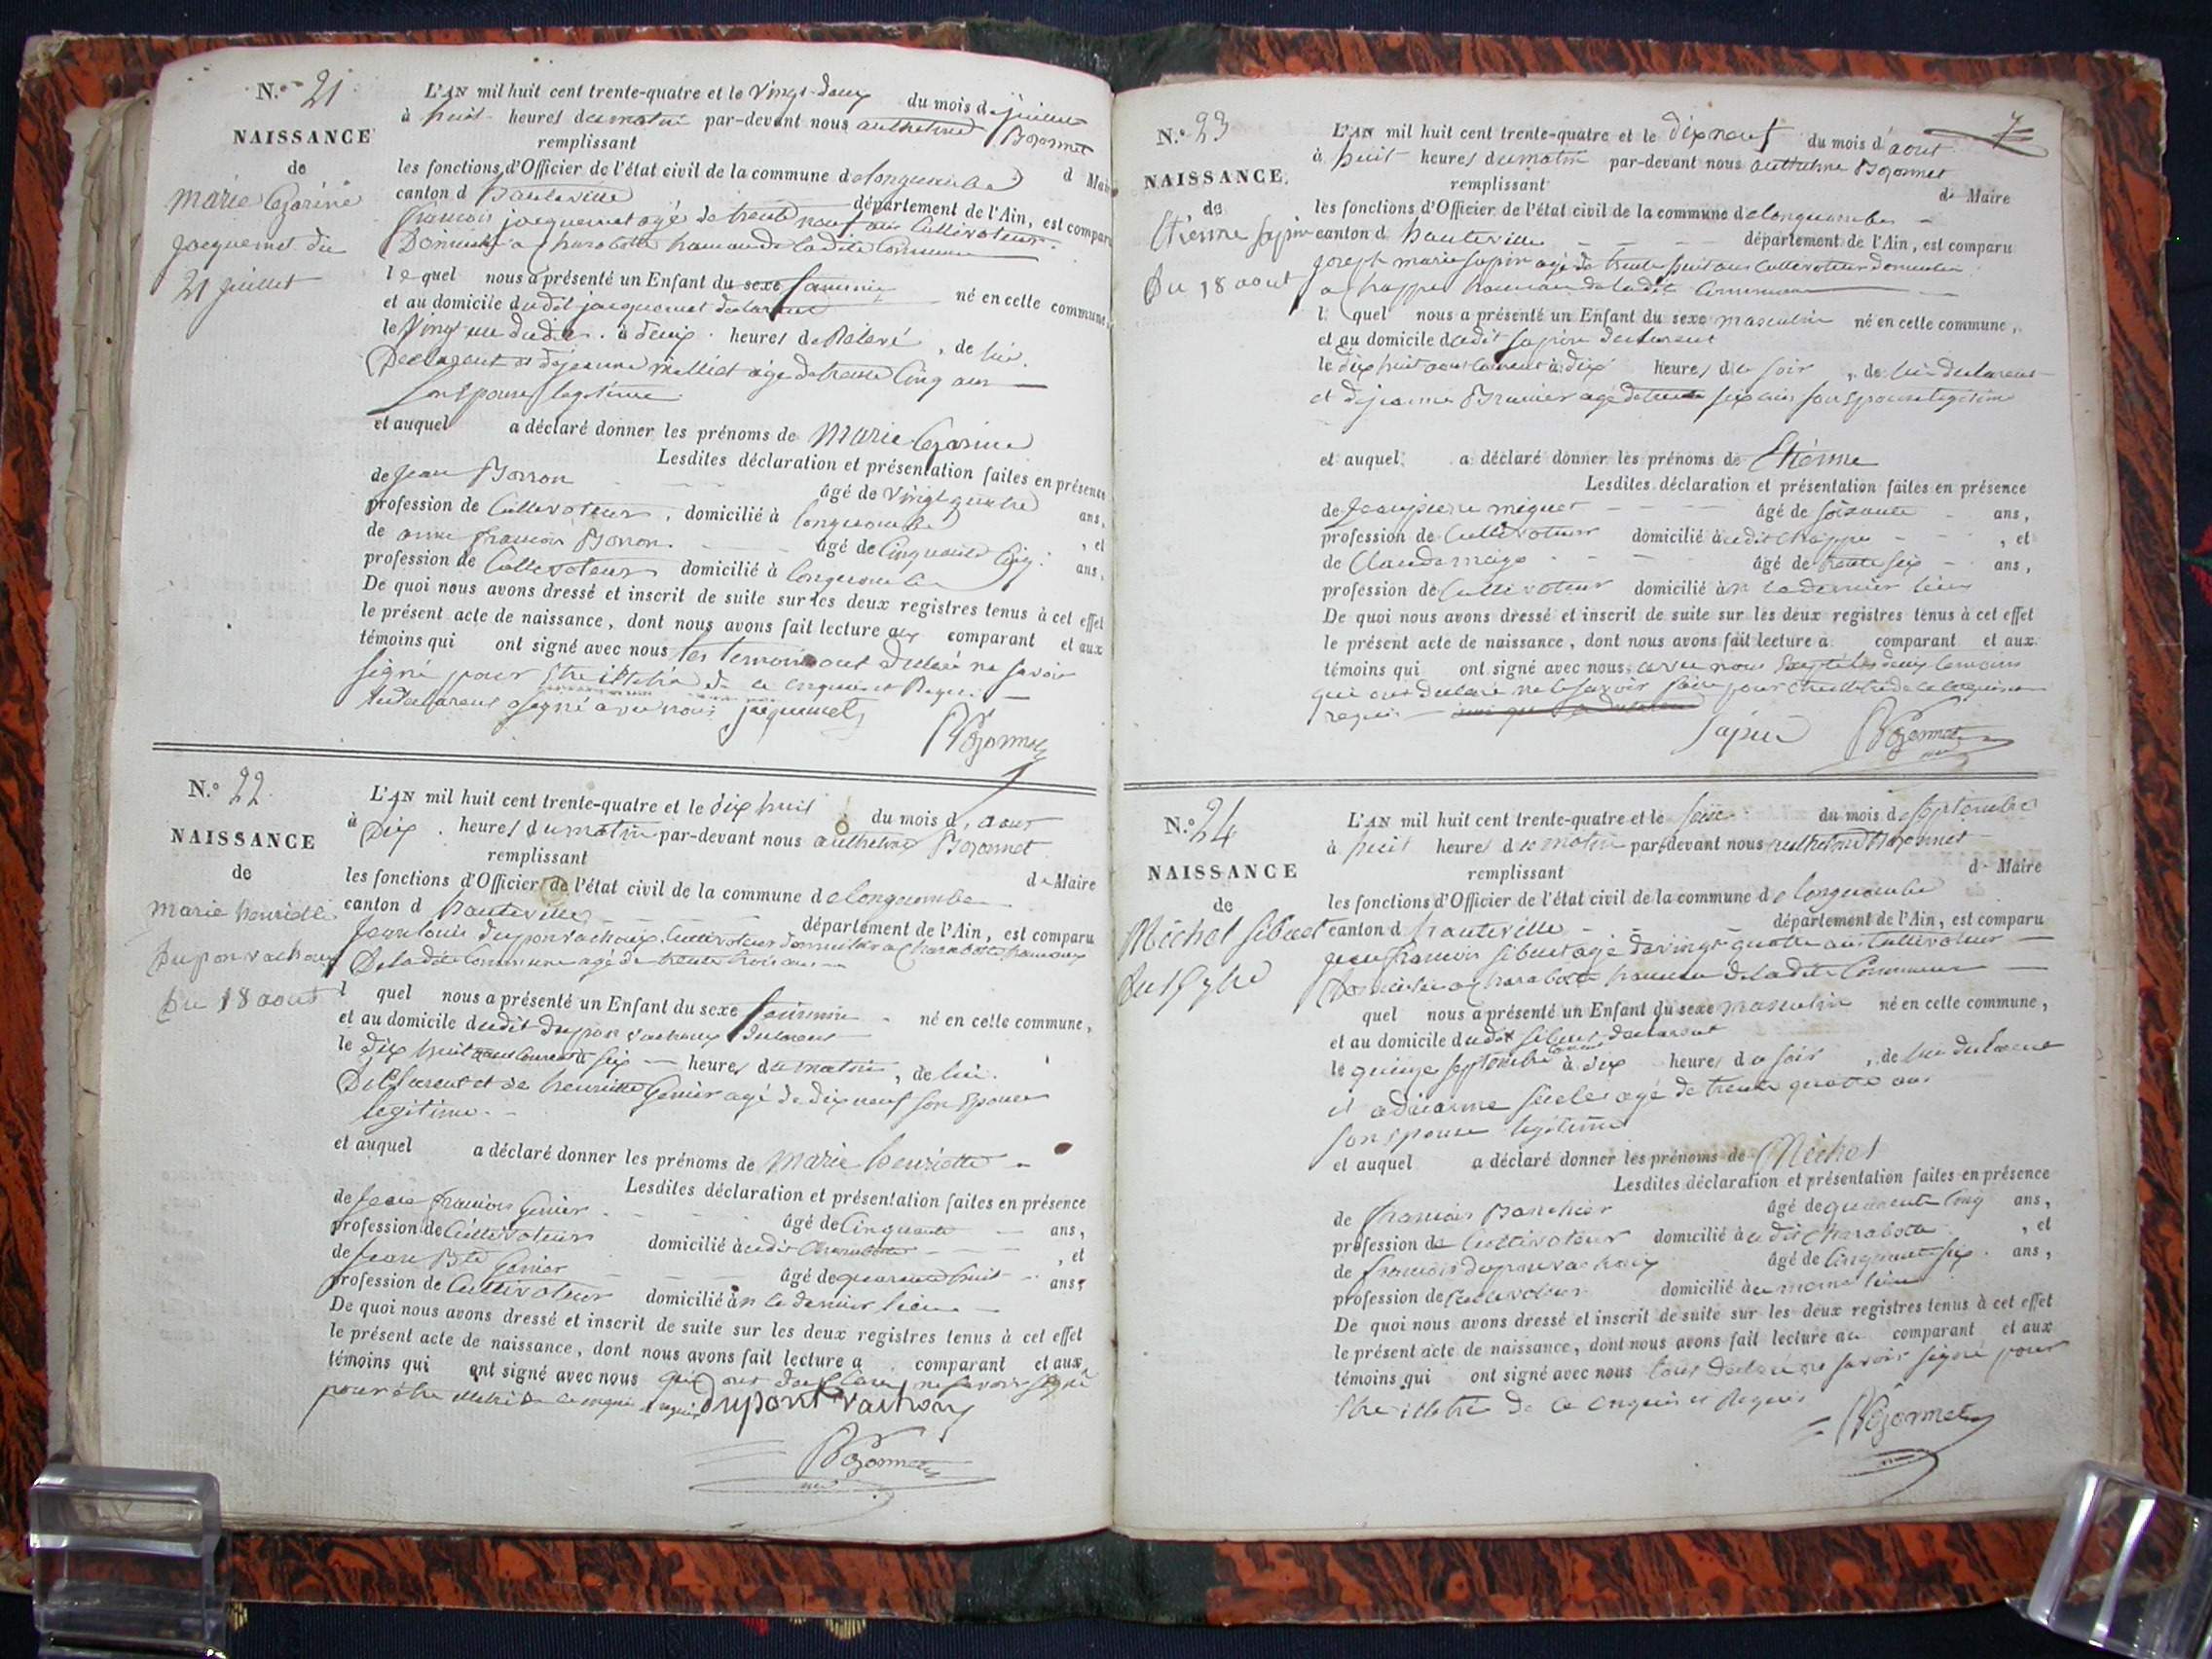 N.º 21
NAISSANCE
de
marie Cezarine
jacquemet du
21 juillet
L'AN mil huit cent trente-quatre et le vingt-deux du mois de juillet
à huit heures du matin par-devant nous anthelme Bozonnet
remplissant d Maire
les fonctions d'Officier de l'état civil de la commune de longecombe
canton d hauteville département de l'Ain, est comparu
francois jacquemet agé de trente neuf ans Cultivateur
Domicilié a charabotte hamau de ladite Commune
le quel nous a présenté un Enfant du sexe feminin né en cette commune,
et au domicile dudit jacquemet declarant
le vingt un dudit à deux heures de Relevé, de lui
Declarent et de jeanne Milliet agé de trente Cinq ans
son Epouse legitime
et auquel a déclaré donner les prénoms de Marie Cezarine
Lesdites déclaration et présentation faites en présence
de jean Borron âgé de vingt quatre ans,
profession de Cultivateur, domicilié à longecombe, et
de francois Borron âgé de Cinquante Cinq ans,
profession de Cultivateur domicilié à longecombe
De quoi nous avons dressé et inscrit de suite sur les deux registres tenus à cet effet
le présent acte de naissance, dont nous avons fait lecture aux comparant et aux
témoins qui ont signé avec nous les temoins ont declaré ne savoir
signé pour être illetré de ce enquis et Requis
le declarent a signé avec nous jacquemet
Bozonnet
N.º 22
NAISSANCE
de
marie henriette
Dupon vachoux
Du 18 aout
L'AN mil huit cent trente-quatre et le dix huit du mois d'aout
à Dix heures du matin par-devant nous anthelme Bozonnet
remplissant de Maire
les fonctions d'Officier de l'état civil de la commune de longecombe
canton d hauteville département de l'Ain, est comparu
Jean louis dupon vachoux Cultivateur domicilié a Charabotte hamaux
De ladite Commune agé de trente trois ans
l quel nous a présenté un Enfant du sexe feminin né en cette commune,
et au domicile dudit dupon vachoux declarent
le dix huit aout courent à six heures du matin, de lui
Declarent et de henriette Genier agé de dix neuf son Epouse
legitime
et auquel a déclaré donner les prénoms de Marie henriette
Lesdites déclaration et présentation faites en présence
de Jean francois Genier âgé de Cinquante ans,
profession de Cultivateur domicilié à udit Charabotte, et
de Jean Bte Genier âgé de quarante huit ans,
profession de Cultivateur domicilié à n ce dernier lieu
De quoi nous avons dressé et inscrit de suite sur les deux registres tenus à cet effet
le présent acte de naissance, dont nous avons fait lecture a comparant et aux
témoins qui ont signé avec nous qui ont declaré ne savoir signé
pour être illetré de ce enquis et requis dupont vachoux
Bozonnet
7
N.º 23
NAISSANCE
de
Etienne Sapin
Du 18 aout
L'AN mil huit cent trente-quatre et le dix neuf du mois d'aout
à huit heures du matin par-devant nous anthelme Bozonnet
remplissant de Maire
les fonctions d'Officier de l'état civil de la commune de longecombe
canton d hauteville département de l'Ain, est comparu
joseph marie sapin agé de trente huit ans Cultivateur domicilié
a chappe hamau de ladite Commune
l quel nous a présenté un Enfant du sexe masculin né en cette commune,
et au domicile dudit sapin declarent
le dix huit aout courent à dix heures du soir, de lui declarent
et de jeanne Brunier agé de trente six ans son Epouse legitime
et auquel a déclaré donner les prénoms de Etienne
Lesdites déclaration et présentation faites en présence
de Jean pierre miguet âgé de soixante ans,
profession de Cultivateur domicilié à udit chappe, et
de Claude âgé de trente six ans,
profession de Cultivateur domicilié à n ce dernier lieu
De quoi nous avons dressé et inscrit de suite sur les deux registres tenus à cet effet
le présent acte de naissance, dont nous avons fait lecture à comparant et aux
témoins qui ont signé avec nous avec nous excepté les deux temoins
qui ont declaré ne le savoir faire pour être illetré de ce enquis et
requis
Sapin Bozonnet
N.º 24
NAISSANCE
de
Michel sibuet
du 15 7bre
L'AN mil huit cent trente-quatre et le seize du mois de septembre
à huit heures du matin par-devant nous anthelme Bozonnet
remplissant de Maire
les fonctions d'Officier de l'état civil de la commune de longecombe
canton d hauteville département de l'Ain, est comparu
jean francois sibuet agé de vingt quatre ans Cultivateur
Domicilié a charabotte hamau de ladite Commune
quel nous a présenté un Enfant du sexe masculin né en cette commune,
et au domicile dudit sibuet declarent
le quinze septembre courent à dix heures du soir, de lui declarent
et agé de trente quatre ans
son epouse legitime
et auquel a déclaré donner les prénoms de Michel
Lesdites déclaration et présentation faites en présence
de francois âgé de quarente Cinq ans,
profession de Cultivateur domicilié à udit Charabotte, et
de francois dupon vachoux âgé de Cinquante six ans,
profession de Cultivateur domicilié à u meme lieu
De quoi nous avons dressé et inscrit de suite sur les deux registres tenus à cet effet
le présent acte de naissance, dont nous avons fait lecture au comparant et aux
témoins qui ont signé avec nous tous declaré ne savoir signé pour
être illetré de ce enquis et Requis
Bozonnet